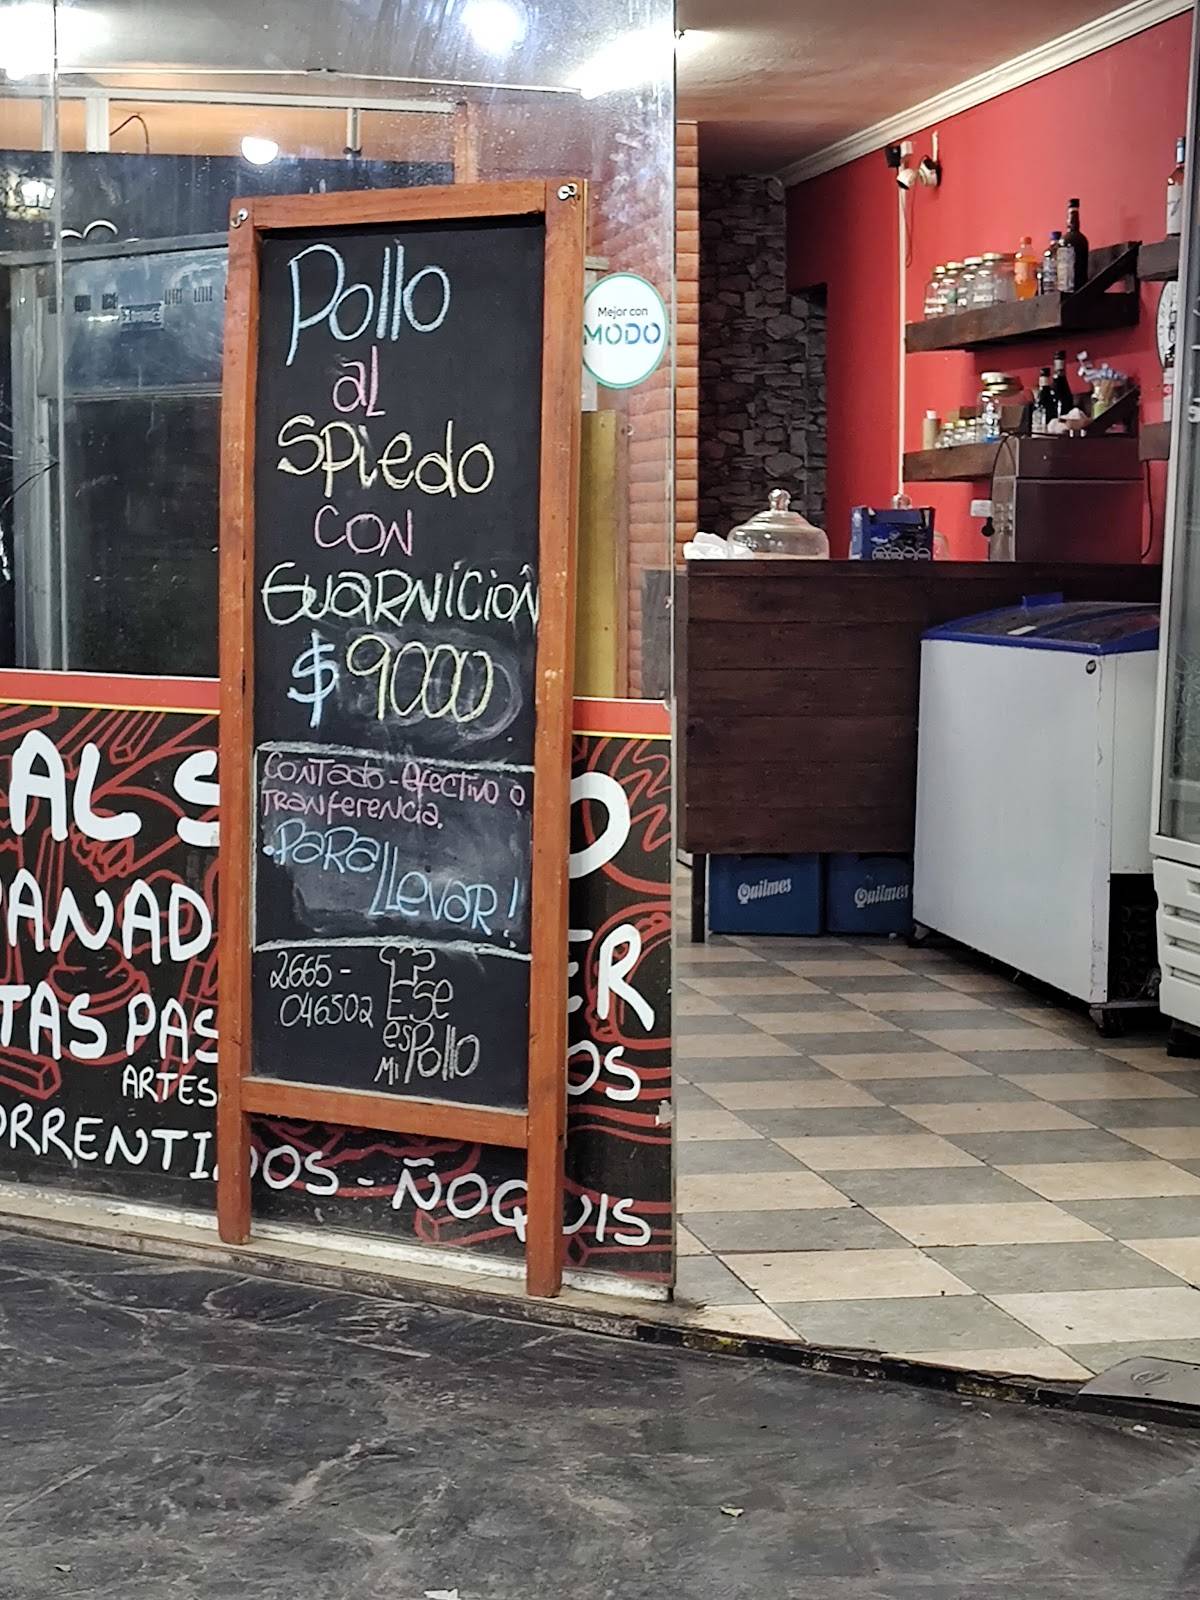 Pollo
al
Spiedo
con
Guarnición
$9000
Contado - efectivo o
Tranferencia.
.Para
LLevar!
2665 -
046502
Ese
es
Mi Pollo
Mejor con
MODO
AL S
O
ER
TAS PAS
OS
ARTES
DOS - ÑOQUIS
Quilmes
Quilmes